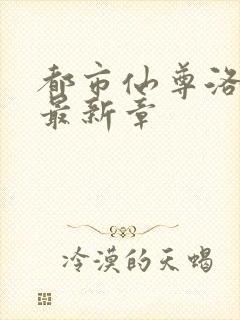 都市仙尊洛
最新章
冷漠的天蝎